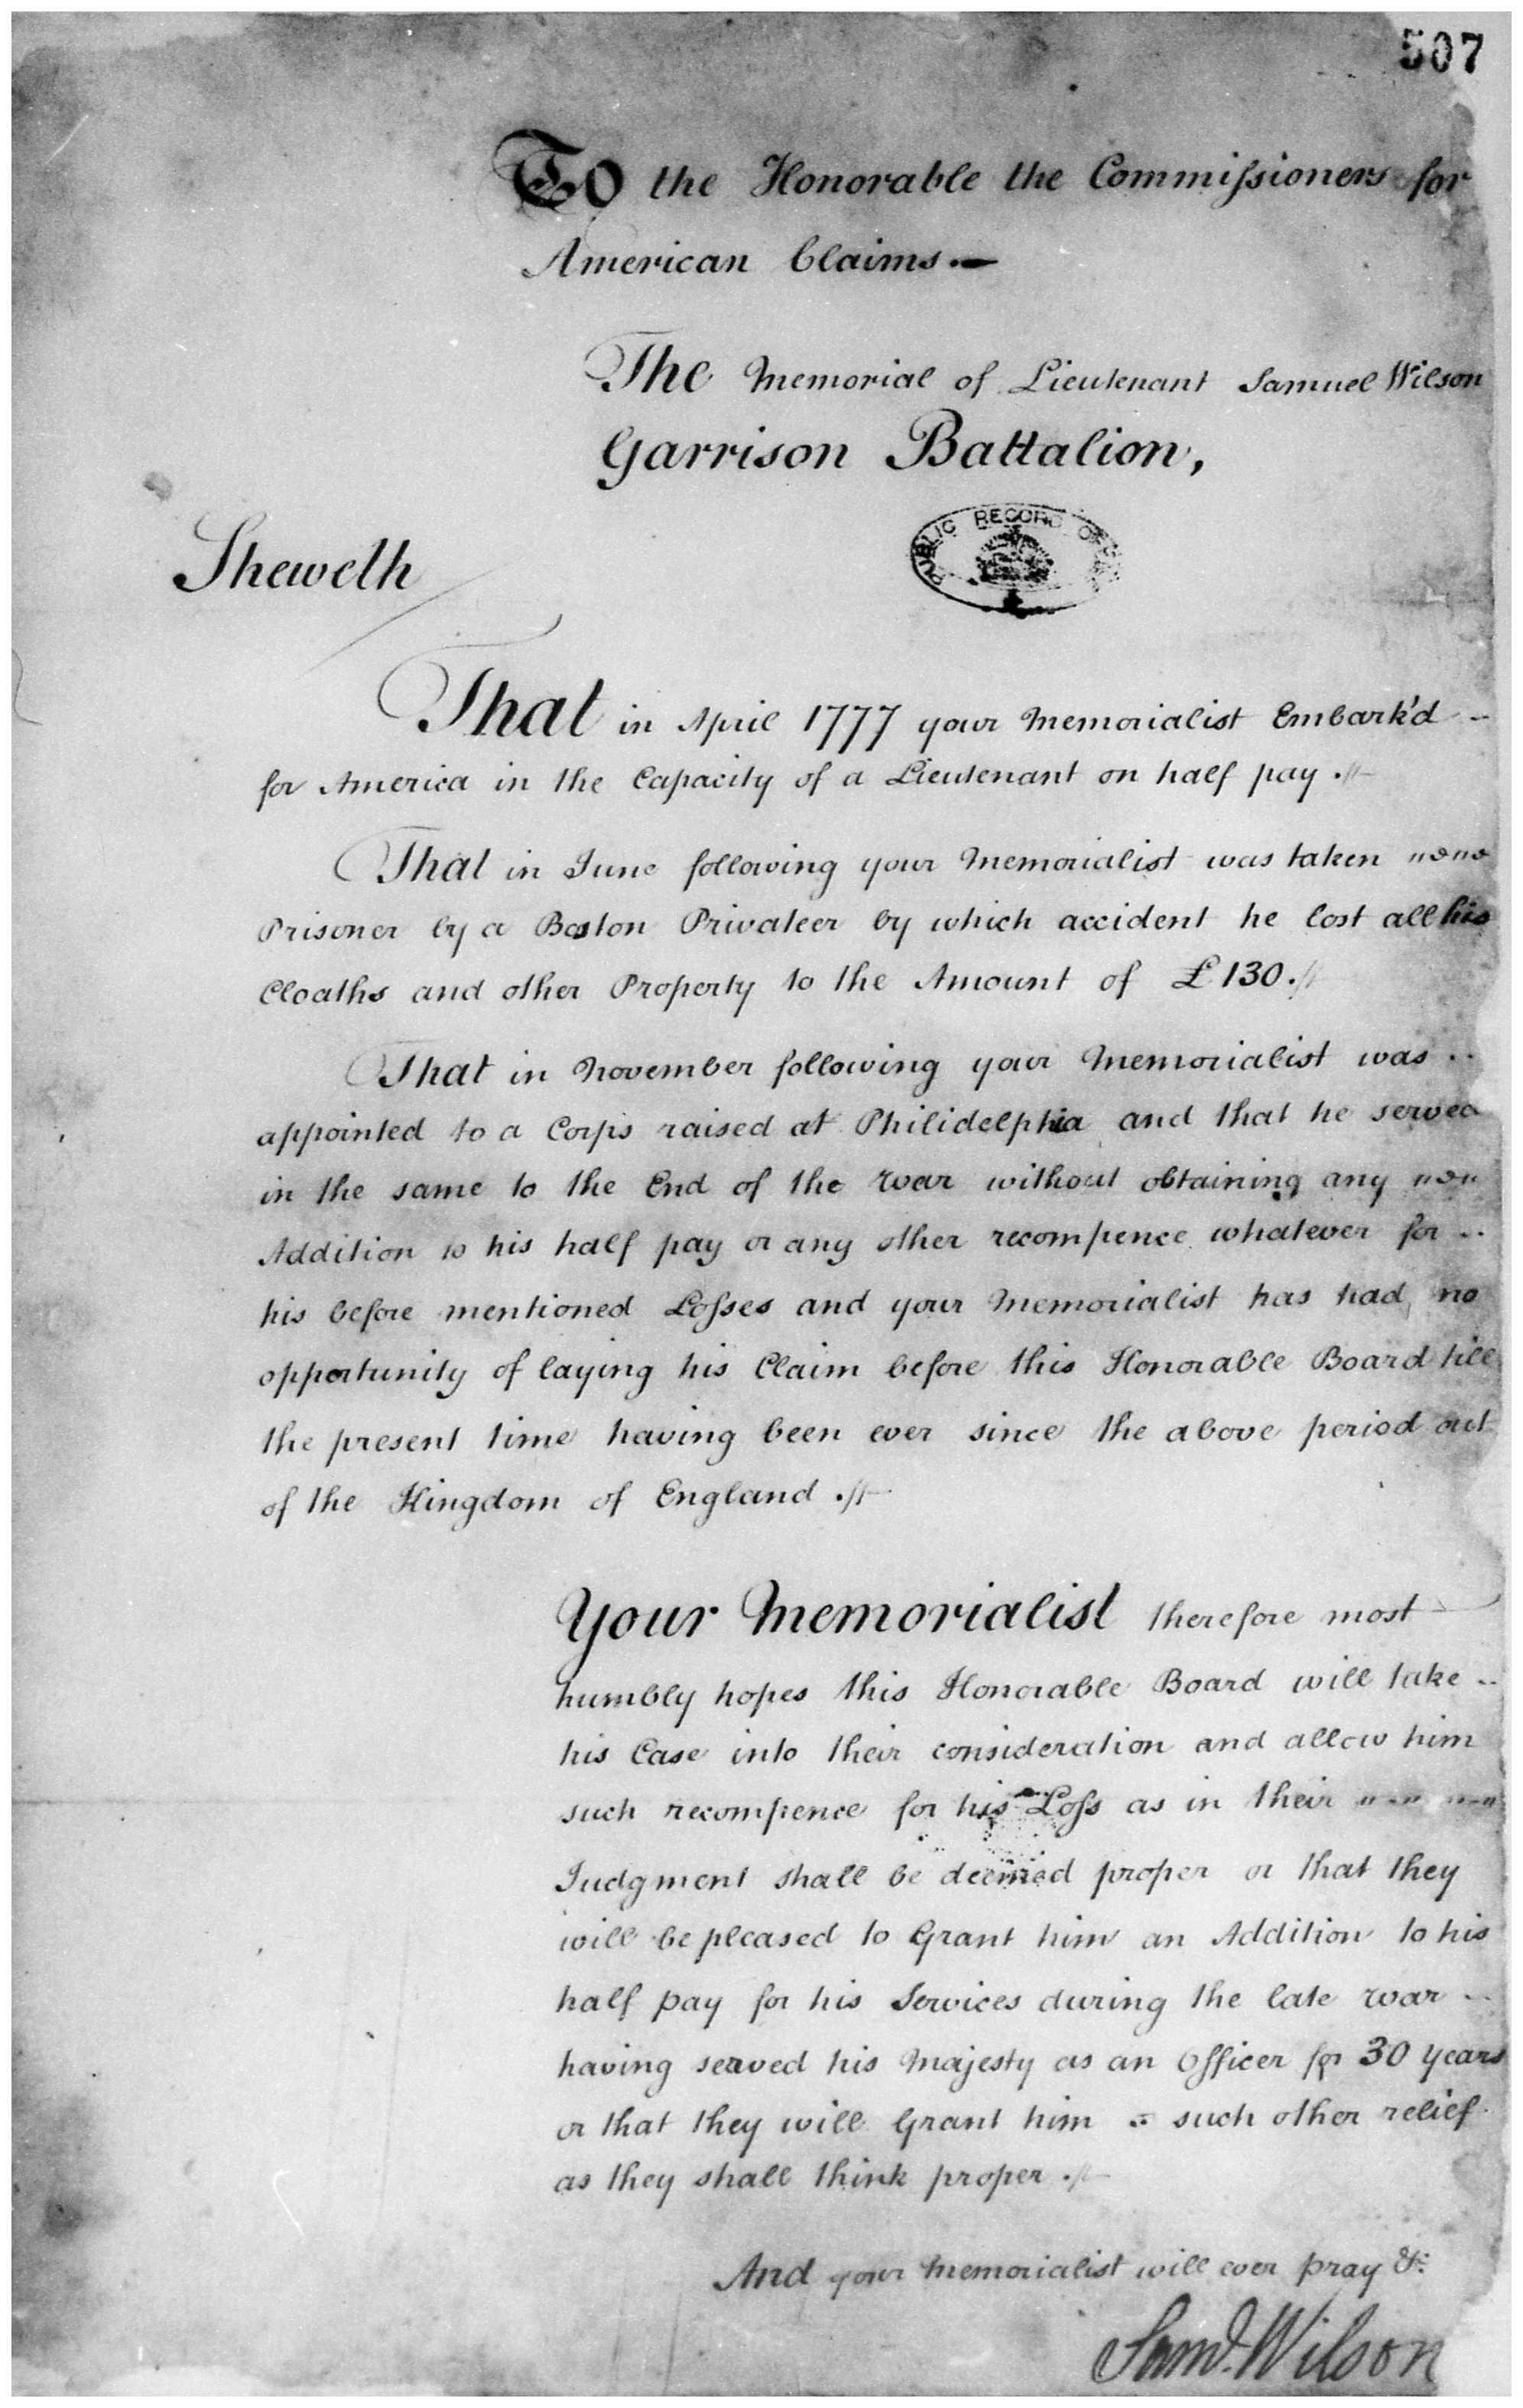 507
To the Honorable the Commissioners for
American Claims.—
The Memorial of Lieutenant Samuel Wilson
Garrison Battalion,
PUBLIC RECORD OFFICE
Sheweth
That in April 1777 your Memorialist Embark'd
for America in the Capacity of a Lieutenant on half pay.
That in June following your Memorialist was taken
Prisoner by a Boston Privateer by which accident he lost all his
Cloaths and other Property to the Amount of £130.
That in November following your Memorialist was
appointed to a Corps raised at Philidelphia and that he served
in the same to the End of the War without obtaining any
Addition to his half pay or any other recompence whatever for
his before mentioned Losses and your Memorialist has had no
opportunity of laying his Claim before this Honorable Board till
the present time having been ever since the above period out
of the Kingdom of England.
Your Memorialist therefore most
humbly hopes this Honorable Board will take
his Case into their consideration and allow him
such recompence for his Loss as in their
Judgment shall be deemed proper or that they
will be pleased to Grant him an Addition to his
half pay for his Services during the late War
having served his Majesty as an Officer for 30 years
or that they will Grant him such other relief
as they shall think proper.
And your Memorialist will ever pray &c
Saml. Wilson